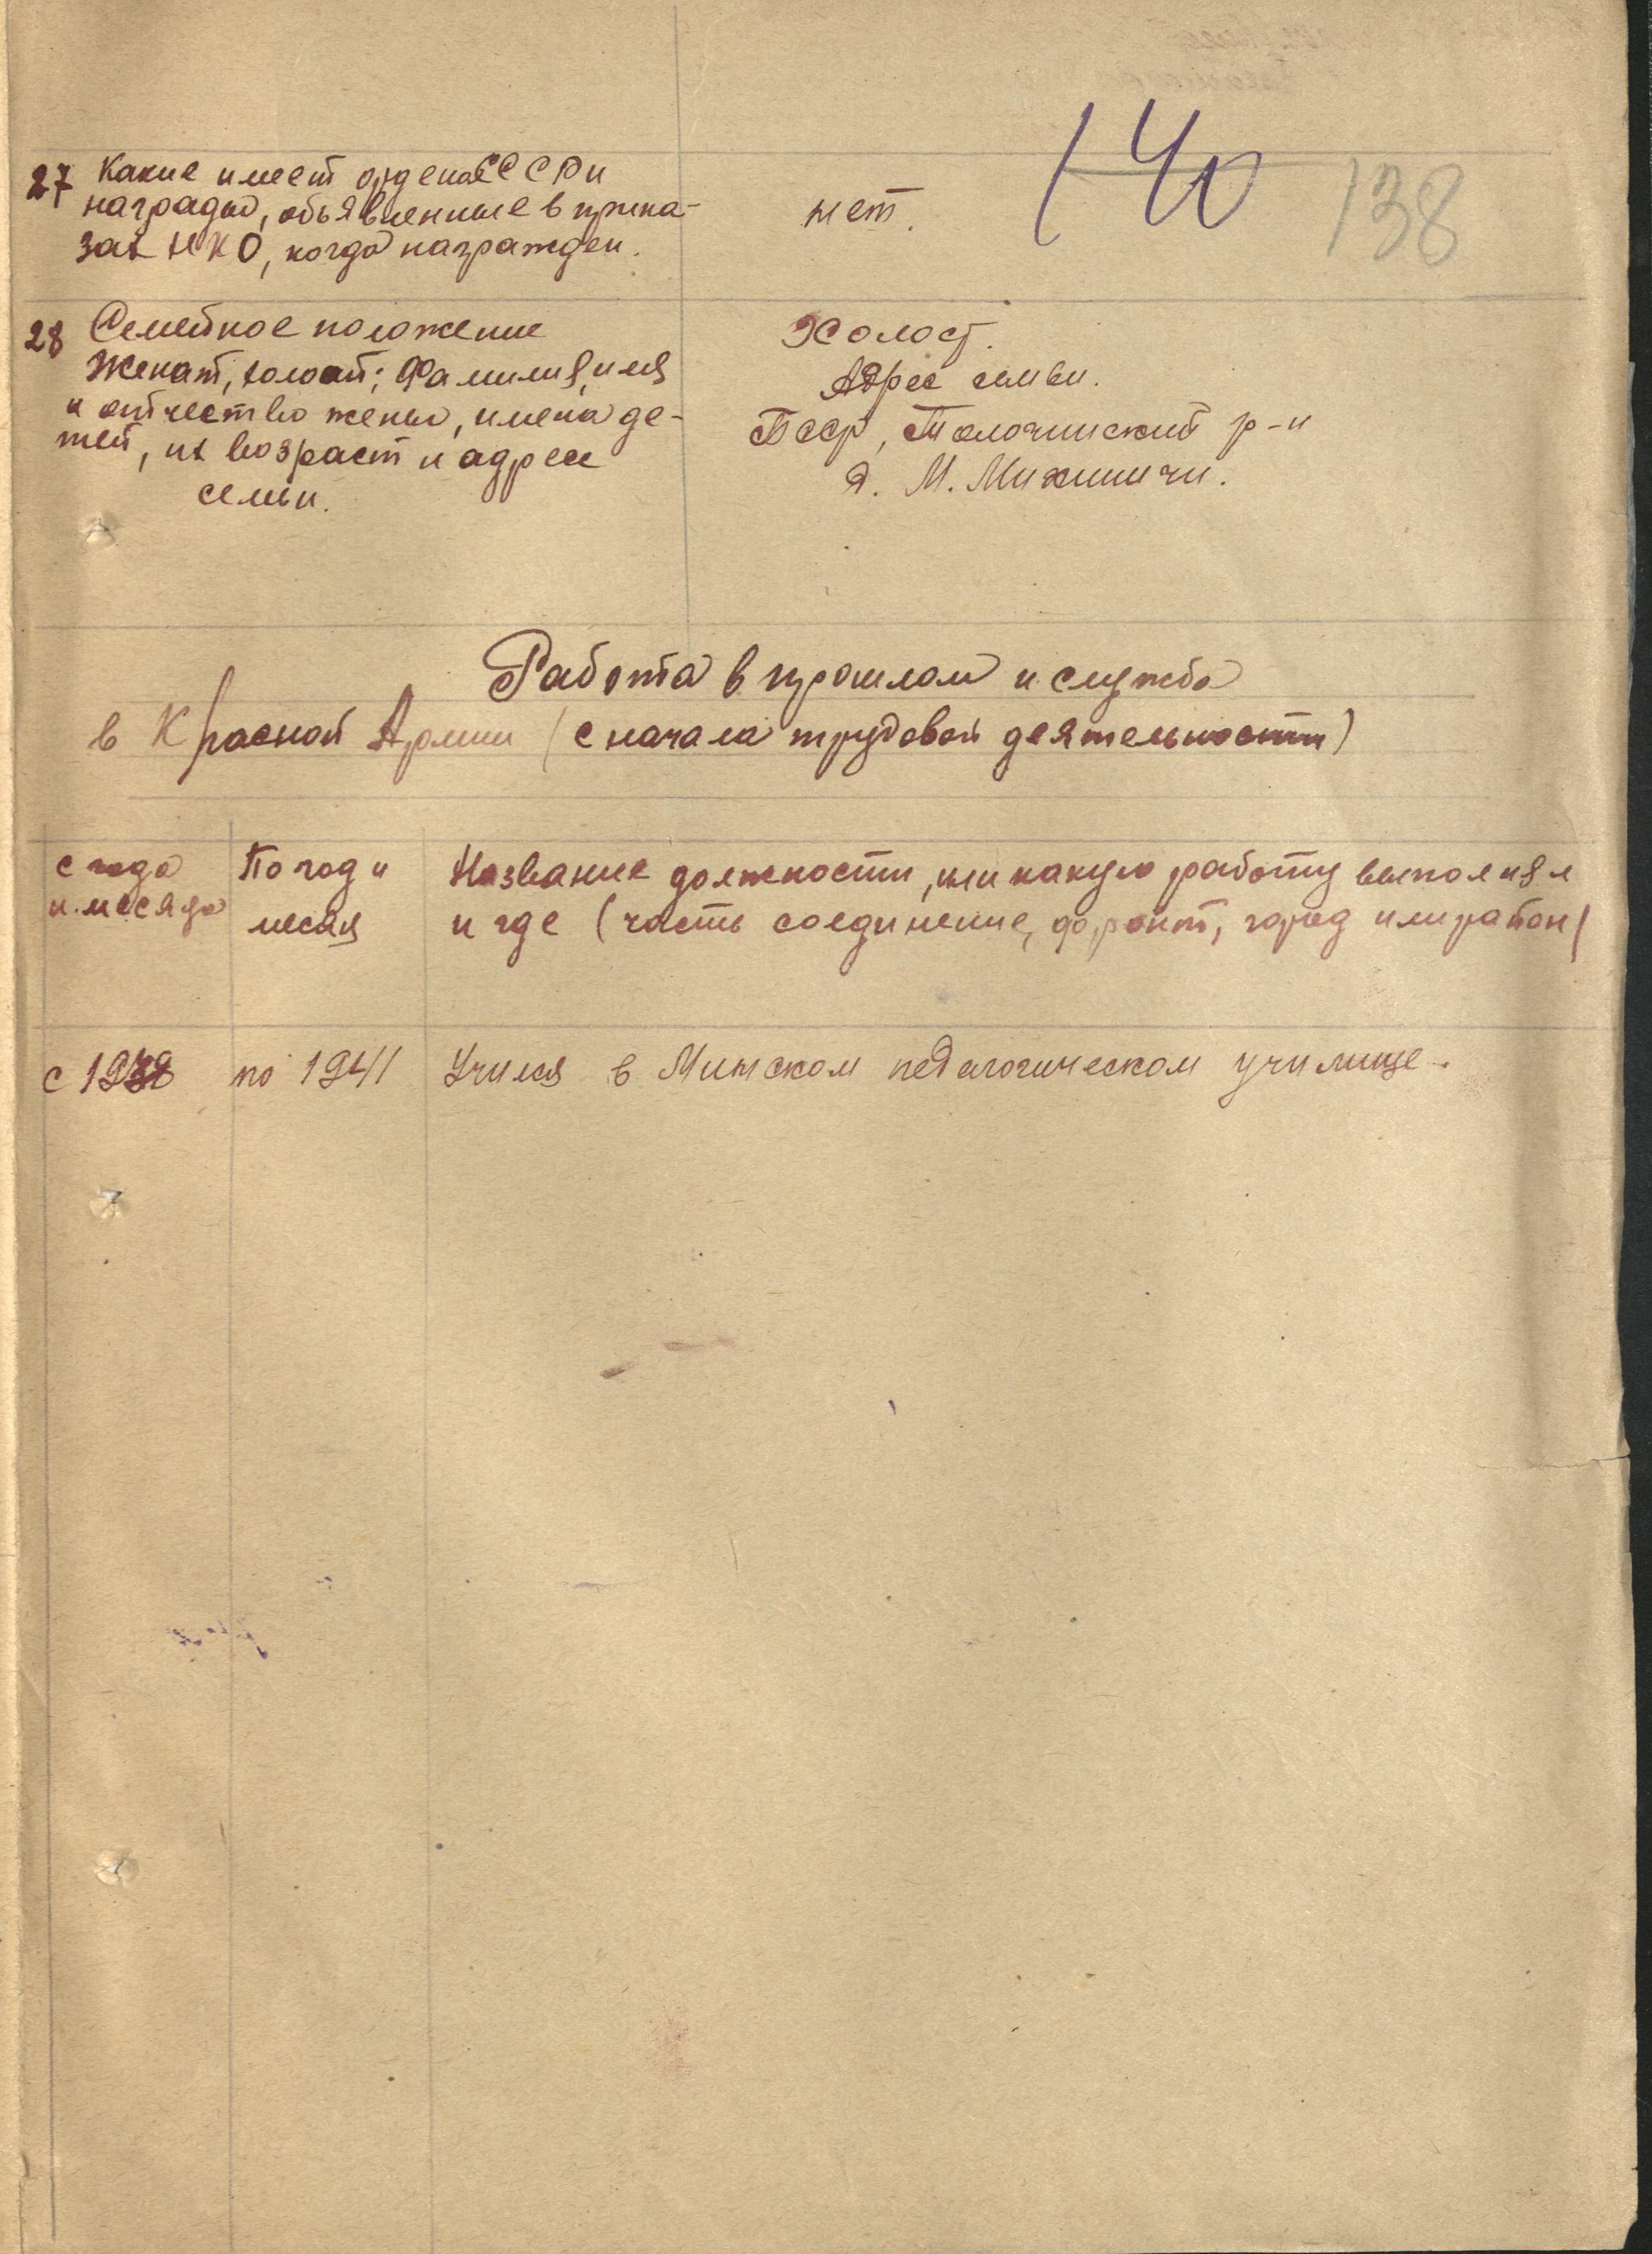 140
138
27 Какие имеет ордена СССР и
награды, объявленные в прика-
зах НКО, когда награжден.
нет.
28 Семейное положение
Женат, холост; Фамилия, имя
и отчество жены, имена де-
тей, их возраст и адрес
семьи.
Холост.
Адрес семьи.
БССР, Толочинский р-н
д. М. Михиничи.
Работа в прошлом и служба
в Красной Армии (с начала трудовой деятельности)
с года
и месяца
По год и
месяц
Название должности, или какую работу выполнял
и где (часть соединение, фронт, город или район)
с 1938 по 1941 Учился в Минском педагогическом училище.